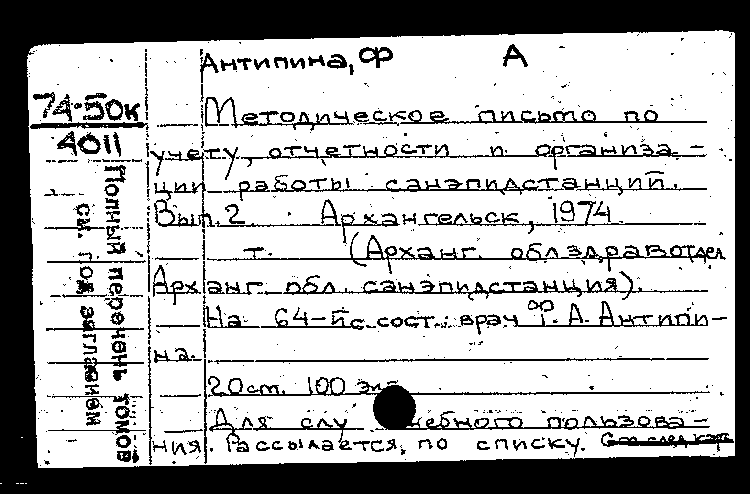 Антипина, Ф А
74-50к
4011
Методическое письмо по
учету, отчетности и организа-
ции работы санэпидстанций.
Вып. 2. Архангельск, 1974
т. (Арханг. облздравотдел
Арханг. обл. санэпидстанция).
На 64-й с. сост.: врач Ф. А. Антипи-
на.
20 ст. 100 экз
Для слу ебного пользова-
ния. Рассылается, по списку.
Полный перечень томов
см. под заглавием